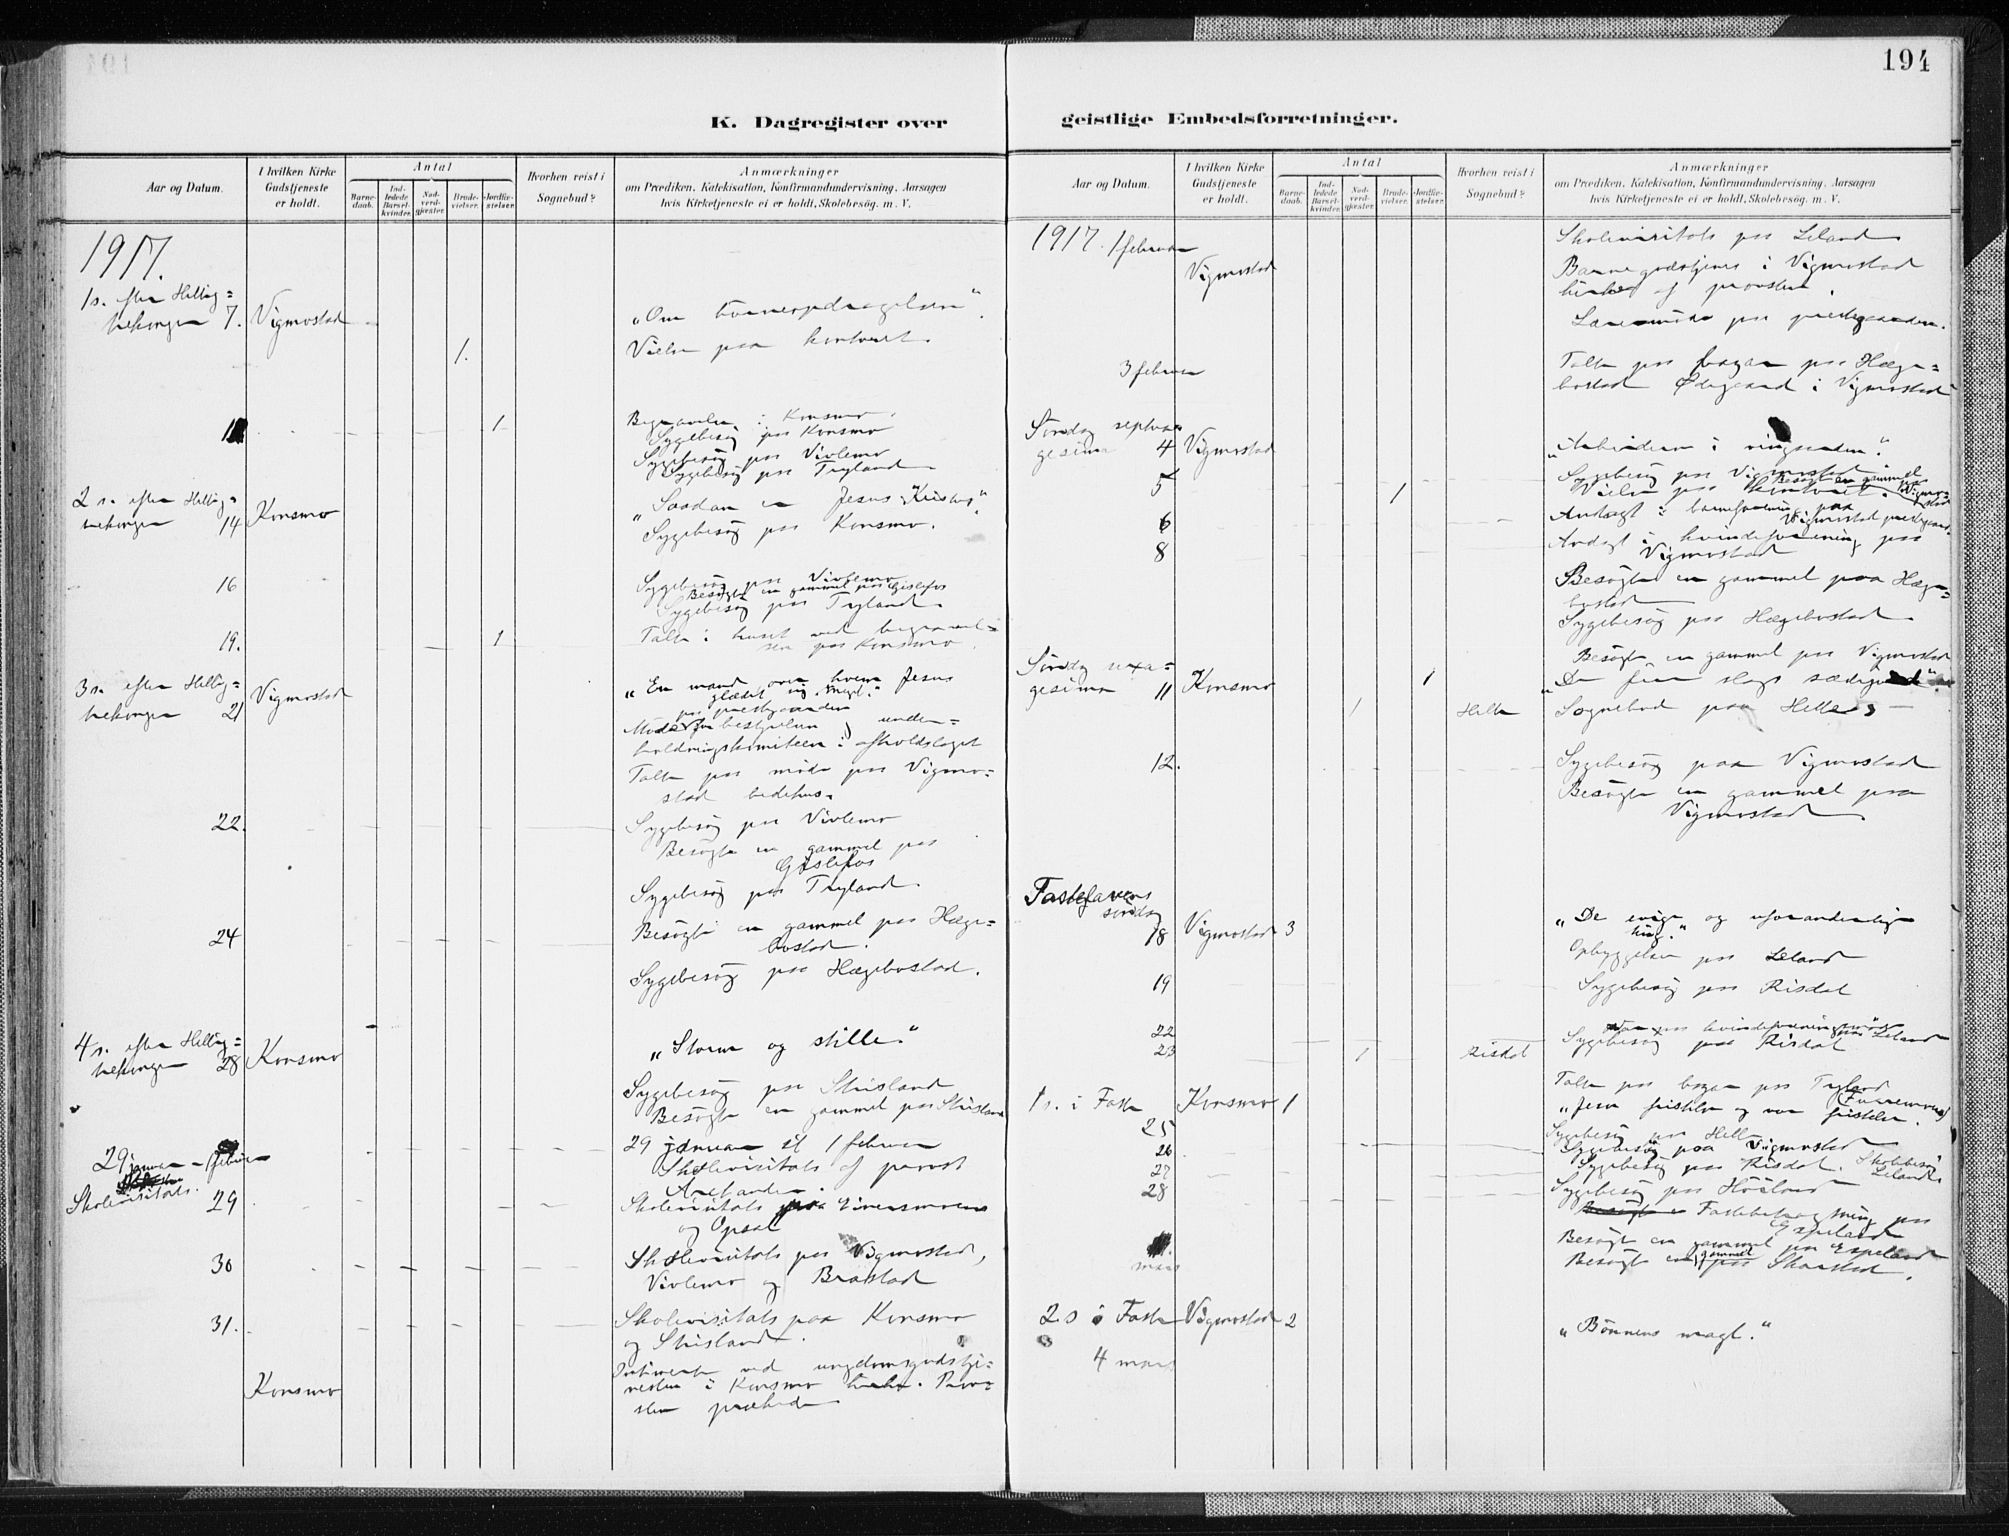 194
K. Dagregister over
geistlige Embedsforretninger.
Aar og Datum.
I hvilken Kirke
Gudstjeneste
er holdt.
Antal
Barne-
daab.
Ind-
ledede
Barsel-
kvinder.
Nad-
verd-
gjæster.
Brude-
vielser.
Jordfæ-
stelser.
Hvorhen reist i
Sognebud?
Anmærkninger
om Prædiken, Katekisation, Konfirmandundervisning, Aarsagen
hvis Kirketjeneste ei er holdt, Skolebesøg, m. V.
1917.
1 s. efter Hellig=
trekonger 7. Vigmostad
"Om barneopdragelsen".
1. Vielse paa kontoret.
1 Begravelse i Konsmo.
Sygebesøg paa Konsmo
Sygebesøg paa Vivlemo
Sygebesøg paa Tryland
2 s. efter Hellig=
trekonger 14 Konsmo
"Saadan er Jesus Kristus".
Sygebesøg paa Konsmo.
16 Sygebesøg paa Vivlemo
Besøgte en gammel paa Gislefos
Sygebesøg paa Tryland.
19. 1 Talte i huset ved begravel=
sen paa Konsmo.
3 s. efter Hellig=
trekonger 21 Vigmostad
"En mand over hvem Jesus
glædet sig meget."
paa prestegaarden
Møde for bestyrelsen under=
holdningskomiteen i afholdslaget
Talte paa møde paa Vigmo=
stad bedehus.
22. Sygebesøg paa Vivlemo
Besøgte en gammel paa
Gislefos
Sygebesøg paa Tryland.
24 Besøgte en gammel paa Hæge=
bostad.
Sygebesøg paa Hægebostad.
4 s. efter Hellig=
trekonger 28 Konsmo
"Storm og stille."
Sygebesøg paa Stusland
Besøgte en gammel paa Stusland
29 januar - 1 februar
29 januar til 1 februar
Skolevisitats af provst
Skolevisitats.
29 Skolevisitats paa
og Opsal
30 Skolevisitats paa Vigmostad,
Vivlemo og Brastad
31. Skolevisitats paa Konsmo
og Stusland.
Konsmo
ved ungdomsgudstje=
nesten i Konsmo kirke. Prov=
sten prækede
Aar og Datum.
I hvilken Kirke
Gudstjeneste
er holdt.
Antal
Barne-
daab.
Ind-
ledede
Barsel-
kvinder.
Nad-
verd-
gjæster.
Brude-
vielser.
Jordfæ-
stelser.
Hvorhen reist i
Sognebud?
Anmærkninger
om Prædiken, Katekisation, Konfirmandundervisning, Aarsagen
hvis Kirketjeneste ei er holdt, Skolebesøg, m. V.
1917. 1 februar
Skolevisitats paa Leland
Vigmostad
Barnegudstjenes i Vigmostad
kirke af provsten.
Læremøde paa prestegaarden.
3 februar
Talte paa bazar paa Hæge=
bostad Ødegaard i Vigmostad
Søndag septua=
gesima 4 Vigmostad
"Arbeiderne i vingaarden".
Sygebesøg paa Vigmostad
5 1 Vielse paa kontoret.
Besøgte en gammel
6 Andagt i barneforening paa
Vigmostad prestegaard.
8 Andagt i kvindeforening paa
Vigmostad
Besøgte en gammel paa Hæge=
bostad
Sygebesøg paa Hægebostad
Besøgte en gammel paa Vigmostad
Søndag sexa=
gesima 11 Konsmo 1
"De fire slags sædejord".
1 Helle Sognebud paa Helle
12. Sygebesøg paa Vigmostad
Besøgte en gammel paa
Vigmostad
Fastelavens
søndag
18 Vigmostad 3
"De evige og uforanderlige
Opbyggelse paa Leland
19 Sygebesøg paa Risdal
22
23 1 Risdal Sygebesøg paa Risdal
Talte paa bazar paa Tryland
1 s. i Faste Konsmo 1
25
"Jesu fristelse og vor fristelse.
Sygebesøg paa Helle
26 Sygebesøg paa Vigmostad
27 Sygebesøg paa Risdal. Skolebesøg
Leland
28 Sygebesøg paa Høiland
Fastebetragtning paa
Espeland
Besøgte en gammel paa Espeland
Besøgte en gammel paa Skarstad.
mars
2 s i Faste Vigmostad 2
"Bønnens magt."
4 mars